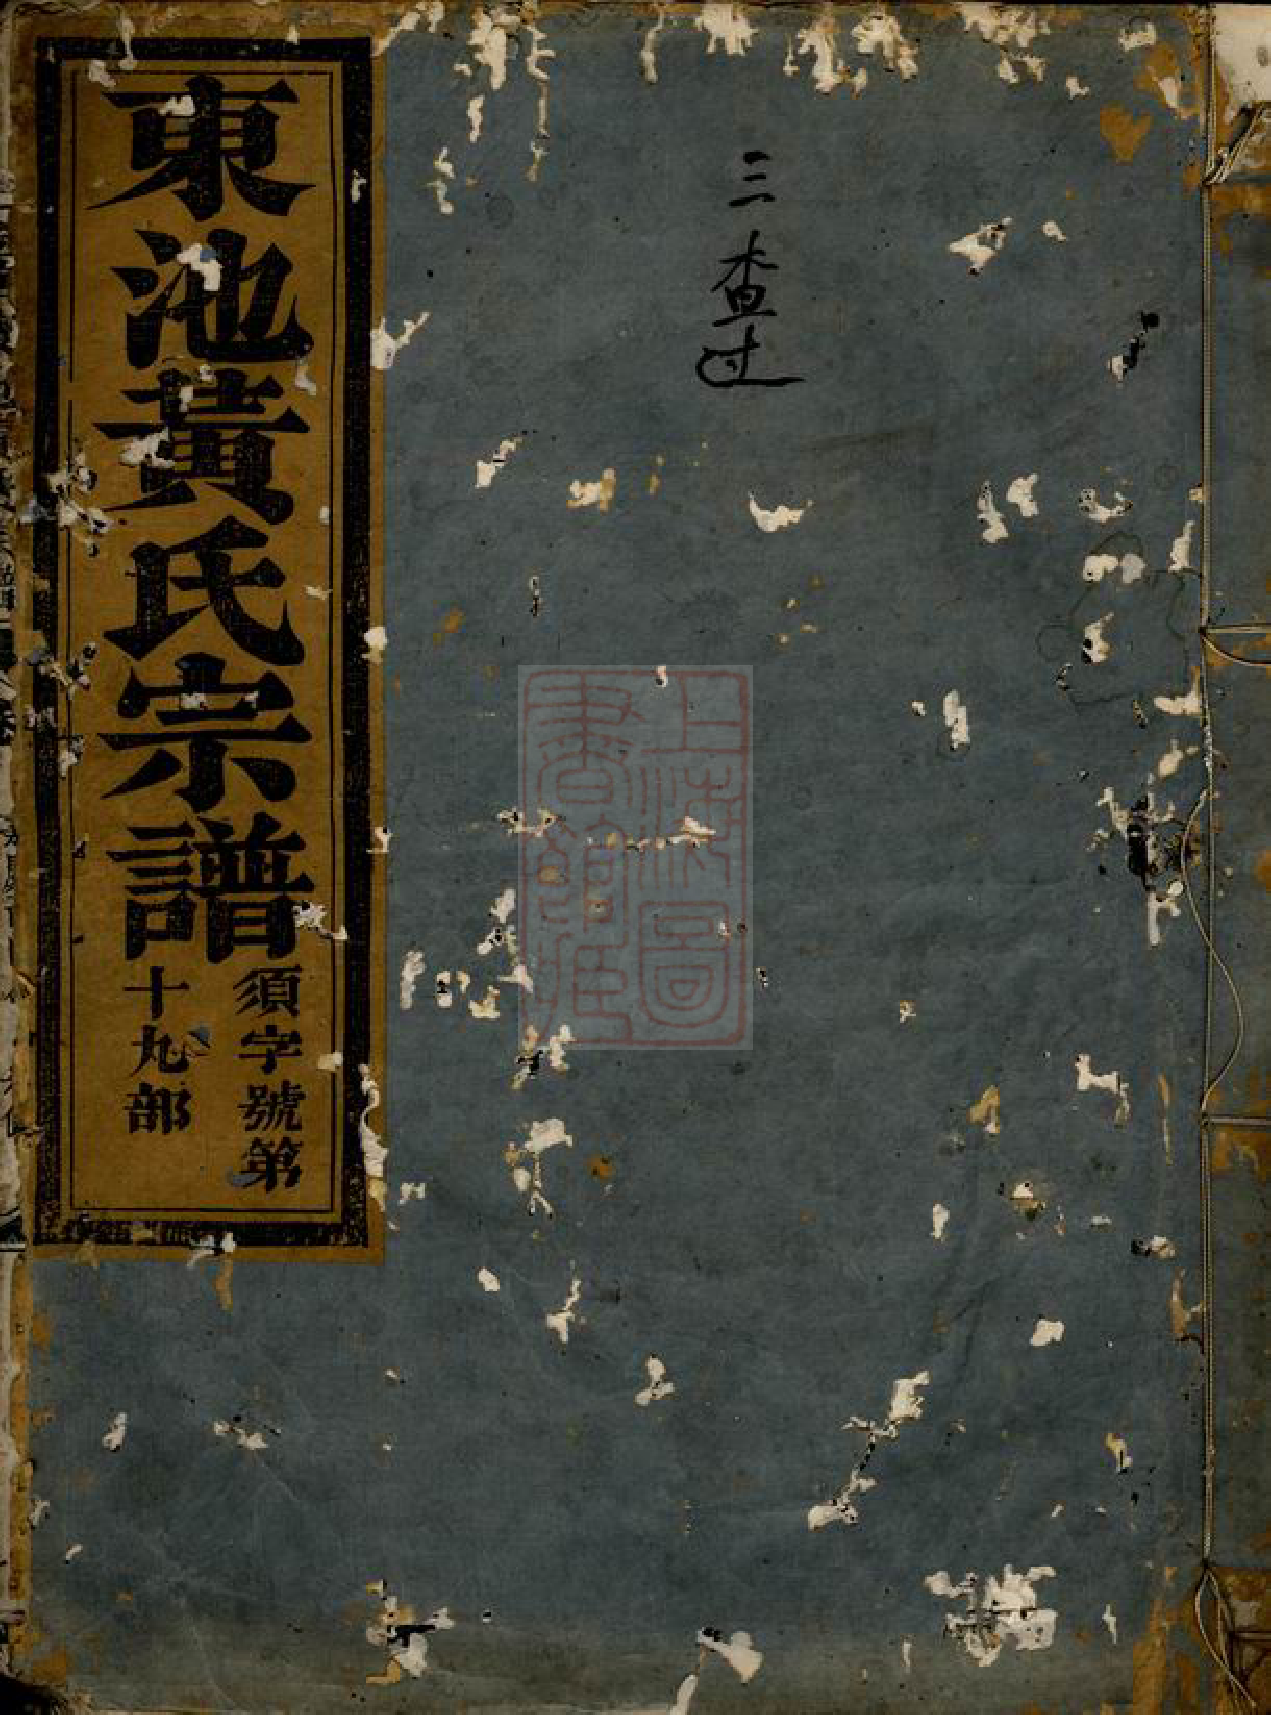 三查过
東池黃氏宗譜
須字號第
十九部
上海圖
書館藏